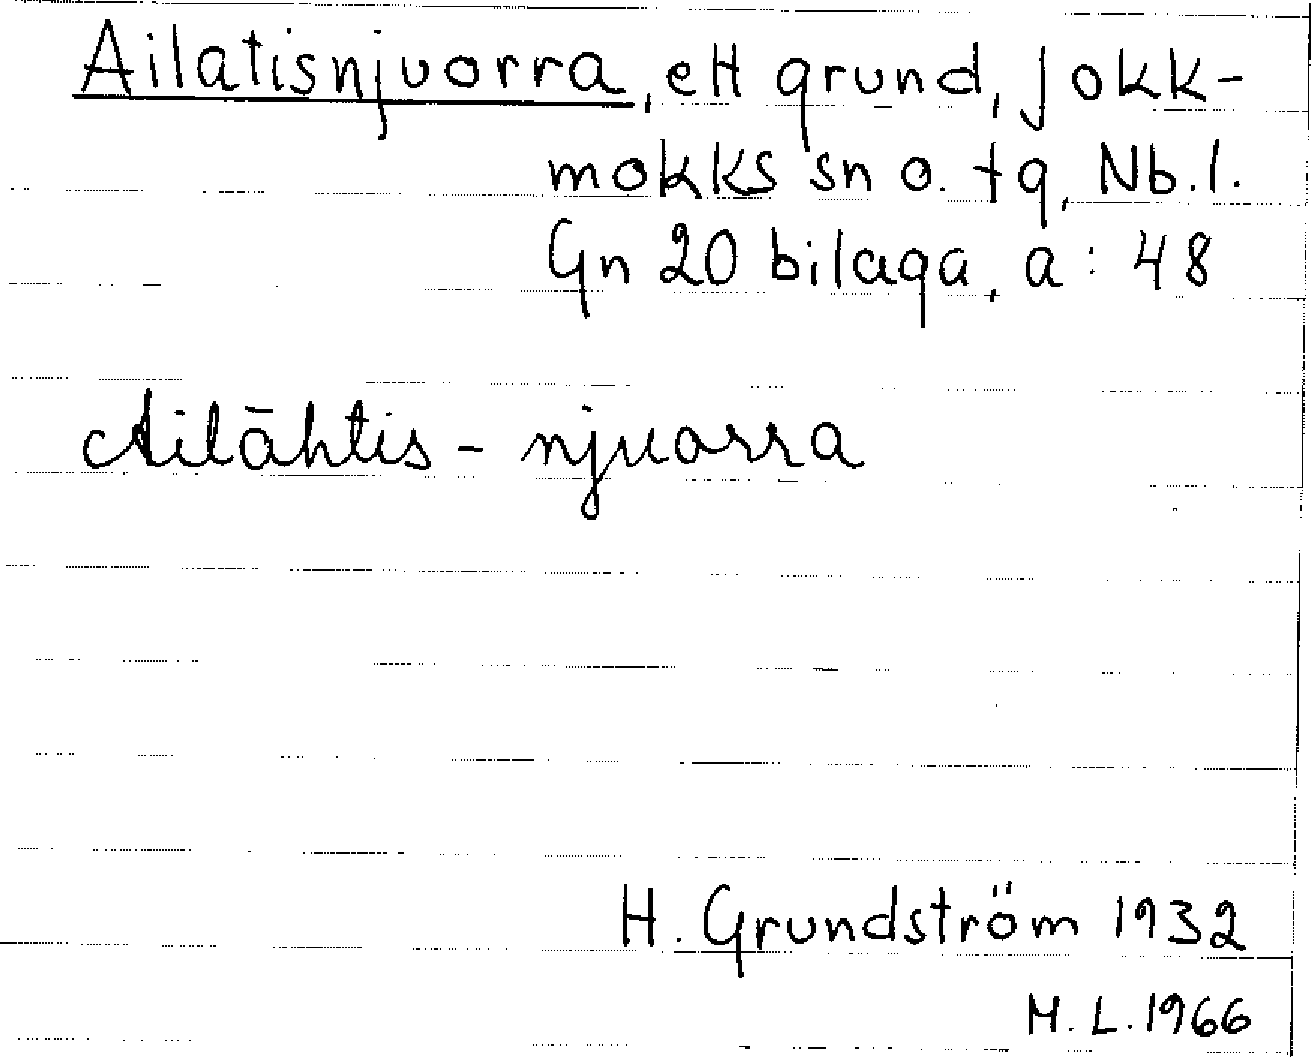 Ailatisnjuorra, ett grund, Jokk-
mokks sn o. tg, Nb.l.
Gn 20 bilaga, a: 48
Ailāhtis - njuorra
H. Grundström 1932
M.L. 1966